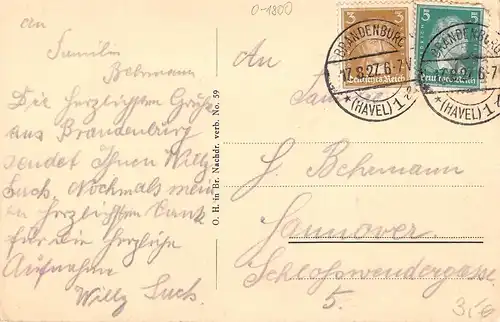 0-1800
An
Familie
Behrmann
Die herzlichsten Grüße
aus Brandenburg
sendet Ihnen Willy
Sach. Nochmals mein
herzlichsten Dank
für die herzliche
Aufnahme
Willy Sach.
O. H. in Br. Nachdr. verb. No. 59
An
Familie
H. Behrmann
Hannover
Schlosswendergasse
5.
3
3
Deutsches Reich
5
5
Deutsches Reich
BRANDENBURG
17.8.27. 6-7V.
*(HAVEL)1
BRANDENBURG
6-7
*(HAVEL)1
3,-€